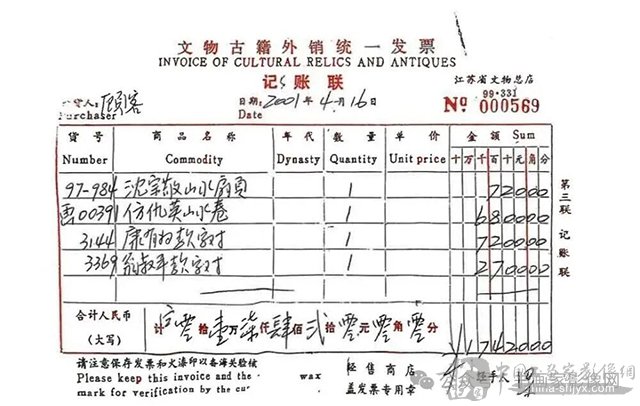 文物古籍外销统一发票
INVOICE OF CULTURAL RELICS AND ANTIQUES
记账联
江苏省文物总店
货人：顾客 日期：2001年4月16日 99·331
Purchaser Date Nº 000569
货号 商品名称 年代 数量 单价 金额 Sum
Number Commodity Dynasty Quantity Unit price 十万千百十元角分
97-984 沈宗敬山水扇页 1 72000
画00391 仿仇英山水卷 1 680000
3144 康有为款字对 1 720000
3369 翁叔平款字对 1 270000
第三联 记账联
合计人民币
（大写） 计 零拾壹万柒仟肆佰贰拾零元零角零分 1742000
请注意保存发票和火漆印以备海关验核 经售商店 经手人
Please keep this invoice and the wax
mark for verification by the cu 盖发票专用章
www.sfjyx.com